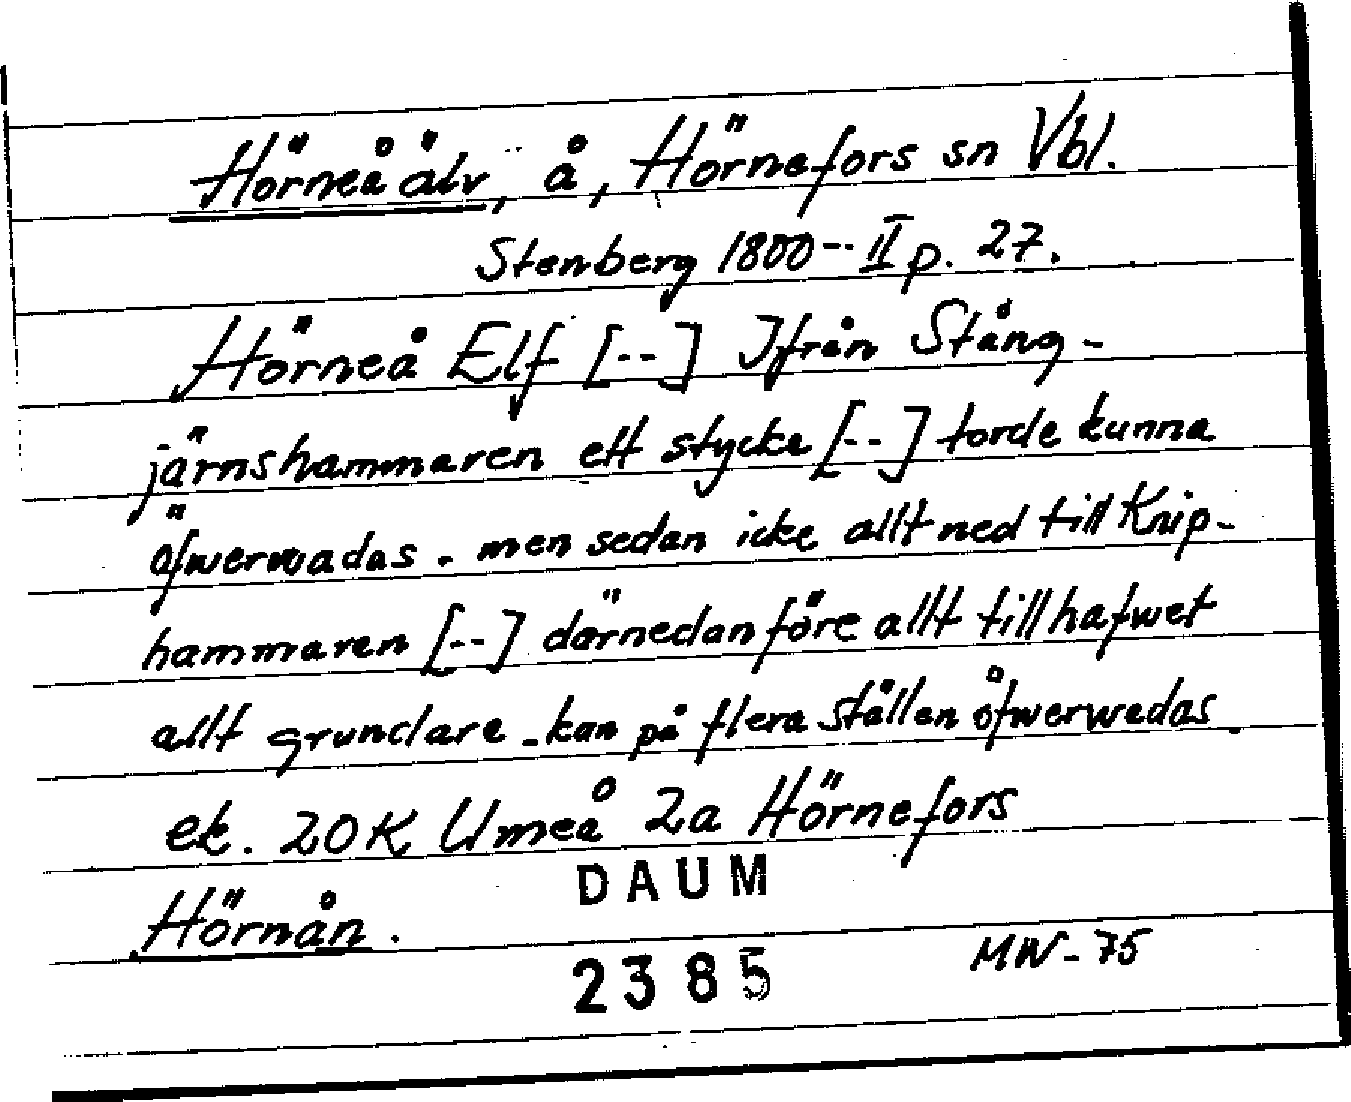 Hörneå älv, å, Hörnefors sn Vbl.
Stenberg 1800-- II p. 27.
Hörneå Elf [--] Ifrån Stång-
järnshammaren ett stycke [--] torde kunna
öfwerwadas - men sedan icke allt ned till Knip-
hammaren [--] därnedanföre allt till hafwet
allt grundare - kan på flera ställen öfwerwadas
ek. 20K Umeå 2a Hörnefors
DAUM
Hörnån.
MW-75
2385